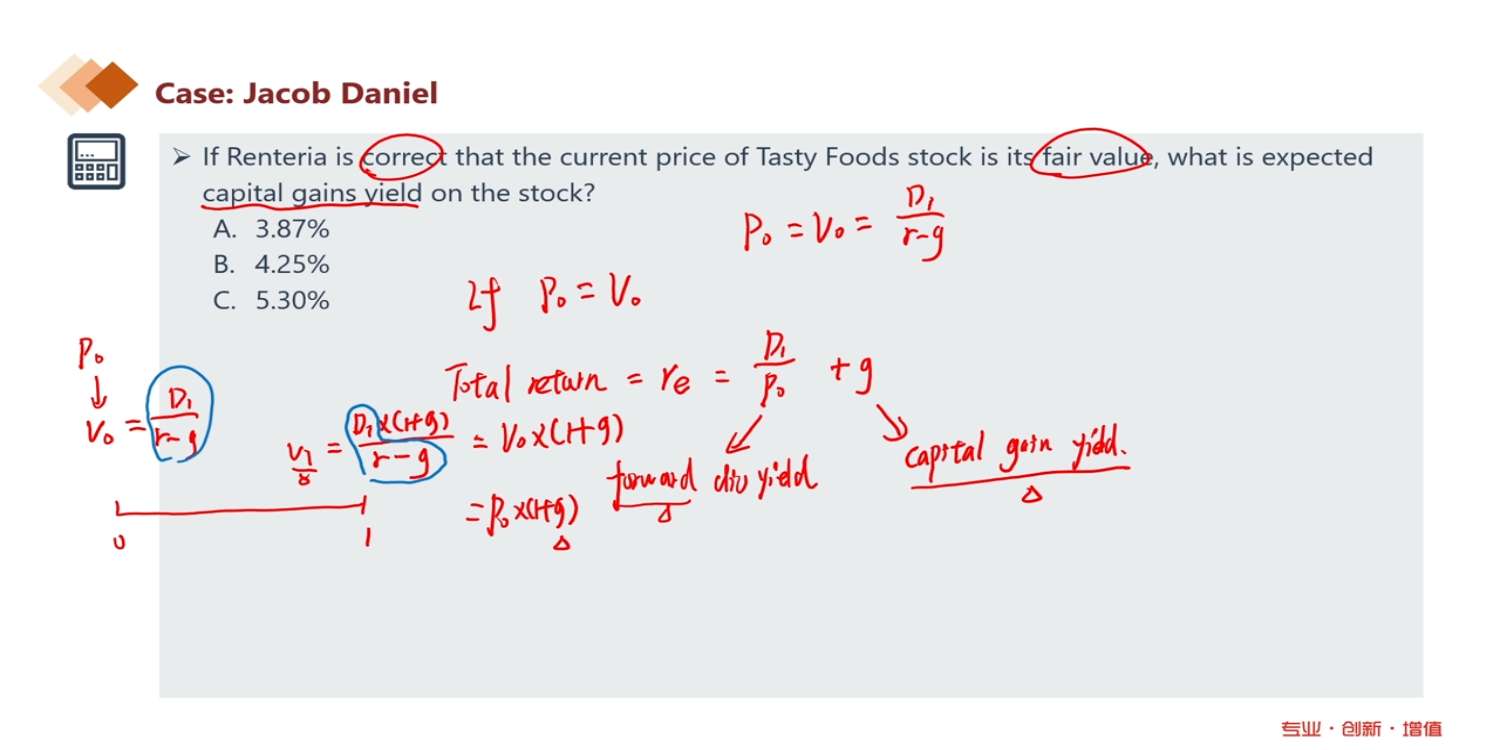 Case: Jacob Daniel
➢ If Renteria is correct that the current price of Tasty Foods stock is its fair value, what is expected
capital gains yield on the stock?
A. 3.87%
B. 4.25%
C. 5.30%
P₀ = V₀ = D₁/(r-g)
If P₀ = V₀
Total return = re = D₁/P₀ + g
forward div yield
capital gain yield.
Δ
Δ
P₀
↓
V₀ = D₁/(r-g)
= D₁×(1+g)/(r-g) = V₀×(1+g)
= P₀×(1+g)
Δ
0
1
专业·创新·增值